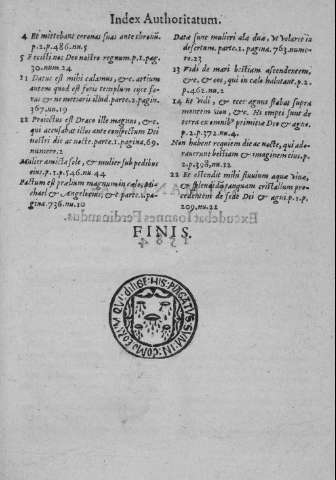 Index Authoritatum.
4 Et mittebant coronas suas ante thronũ.
p.2.p.486.nu.5
5 Fecisti nos Deo nostro regnum.p.1.pag.
30.num.24
11 Datus est mihi calamus, &c. atrium
autem quod est foris templum ejce fo-
ras & ne metiaris illud. parte.2.pagin.
367.nu.19
12 Proiectus est Draco ille magnus, &c.
qui accusabat illos ante conspectum Dei
nostri die ac nocte.parte.1.pagina.69.
numero.2
Mulier amicta sole, & luna sub pedibus
eius.p.1.p.546.nu.44
Factum est prælium magnum in cælo, Mi-
chael & Angeli eius, &c parte.1.pa-
gina.736.nu.10
Datæ sunt mulieri alæ duæ, vt volaret in
desertum.parte.1.pagina.763.nume-
ro.23
13 Vidi de mari bestiam ascendentem,
&c. & eos, qui in cælo habitant.p.2.
p.462.nu.2
14 Et vidi, & ecce agnus stabat supra
montem sion, &c. Hi empti sunt de
terra ex omnibº primitiæ Deo & agno.
p.2.p.372.nu.4.
Non habent requiem die ac nocte, qui ado-
rauerunt bestiam & imaginem eius.p.
2.p.398.nu.22
22 Et ostendit mihi fluuium aquæ viuæ,
& splendidũ tanquam cristallum pro-
cedentem de sede Dei & agni.p.1.p.
209.nu.22
FINIS.
Excudebat Ioannes Ferdinandus.
1584